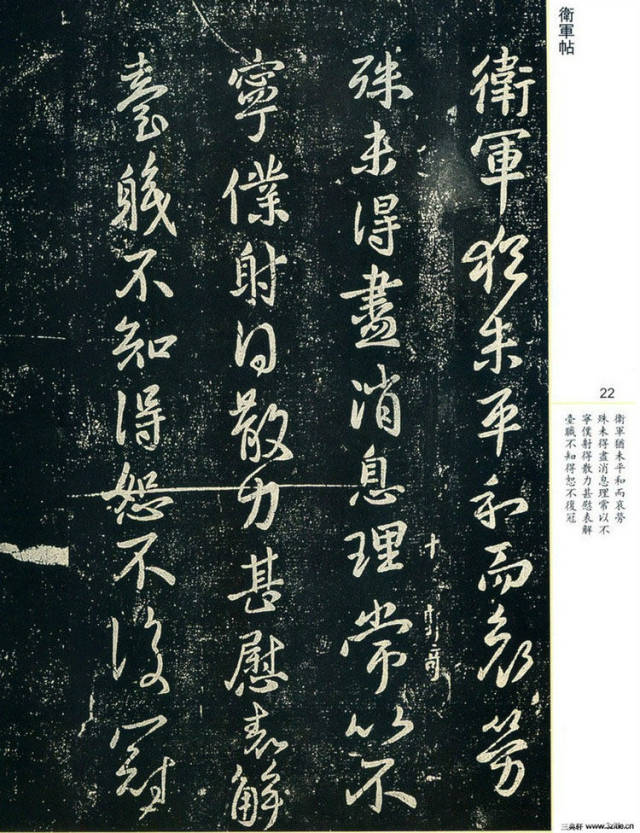 衛軍帖
衛軍猶未平和而哀勞
殊未得盡消息理常以不
寧僕射得散力甚慰表解
臺職不知得恕不復冠
十
22
衛軍猶未平和而哀勞
殊未得盡消息理常以不
寧僕射得散力甚慰表解
臺職不知得恕不復冠
三希轩 www.3zitie.cn